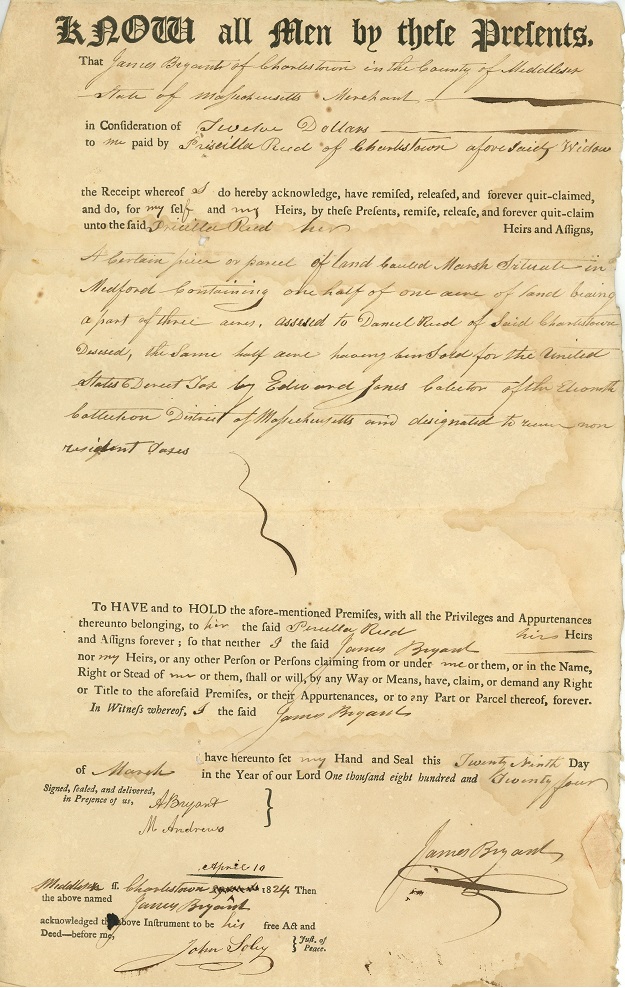 KNOW all Men by theſe Preſents.
That James Bryant of Charlestown in the County of Middlesex
State of Massachusetts Merchant
in Conſideration of Twelve Dollars
to me paid by Priscilla Reed of Charlstown aforesaid Widow
the Receipt whereof I do hereby acknowledge, have remiſed, releaſed, and forever quit-claimed,
and do, for my self and my Heirs, by theſe Preſents, remiſe, releaſe, and forever quit-claim
unto the ſaid, Priscilla Reed her Heirs and Aſſigns,
A Certain piece or parcel of land Caulld Marsh Situate in
Medford Containing one half of one acre of land being
a part of three acres, assesed to Daniel Reed of Said Charlstown
Desesed, the Same half acre having bin Sold for the United
States Derect Tax by Edward Jones Colector of the Eleventh
Collection District of Massechusetts and designated to receive non
resident Taxes
To HAVE and to HOLD the afore-mentioned Premiſes, with all the Privileges and Appurtenances
thereunto belonging, to her the ſaid Priscilla Reed hirs Heirs
and Aſſigns forever; ſo that neither I the ſaid James Bryant
nor my Heirs, or any other Perſon or Perſons claiming from or under me or them, or in the Name,
Right or Stead of me or them, ſhall or will, by any Way or Means, have, claim, or demand any Right
or Title to the aforeſaid Premiſes, or their Appurtenances, or to any Part or Parcel thereof, forever.
In Witneſs whereof, I the ſaid James Bryant
have hereunto ſet my Hand and Seal this Twenty Ninth Day
of March in the Year of our Lord One thouſand eight hundred and Twenty four
Signed, ſealed, and delivered,
in Preſence of us, A Bryant
M Andrews
James Bryant
April 10
Middlesex ſſ. Charlestown 1824 Then
the above named James Bryant
acknowledged the above Inſtrument to be his free Act and
Deed—before me,
John Soley Juſt. of Peace.